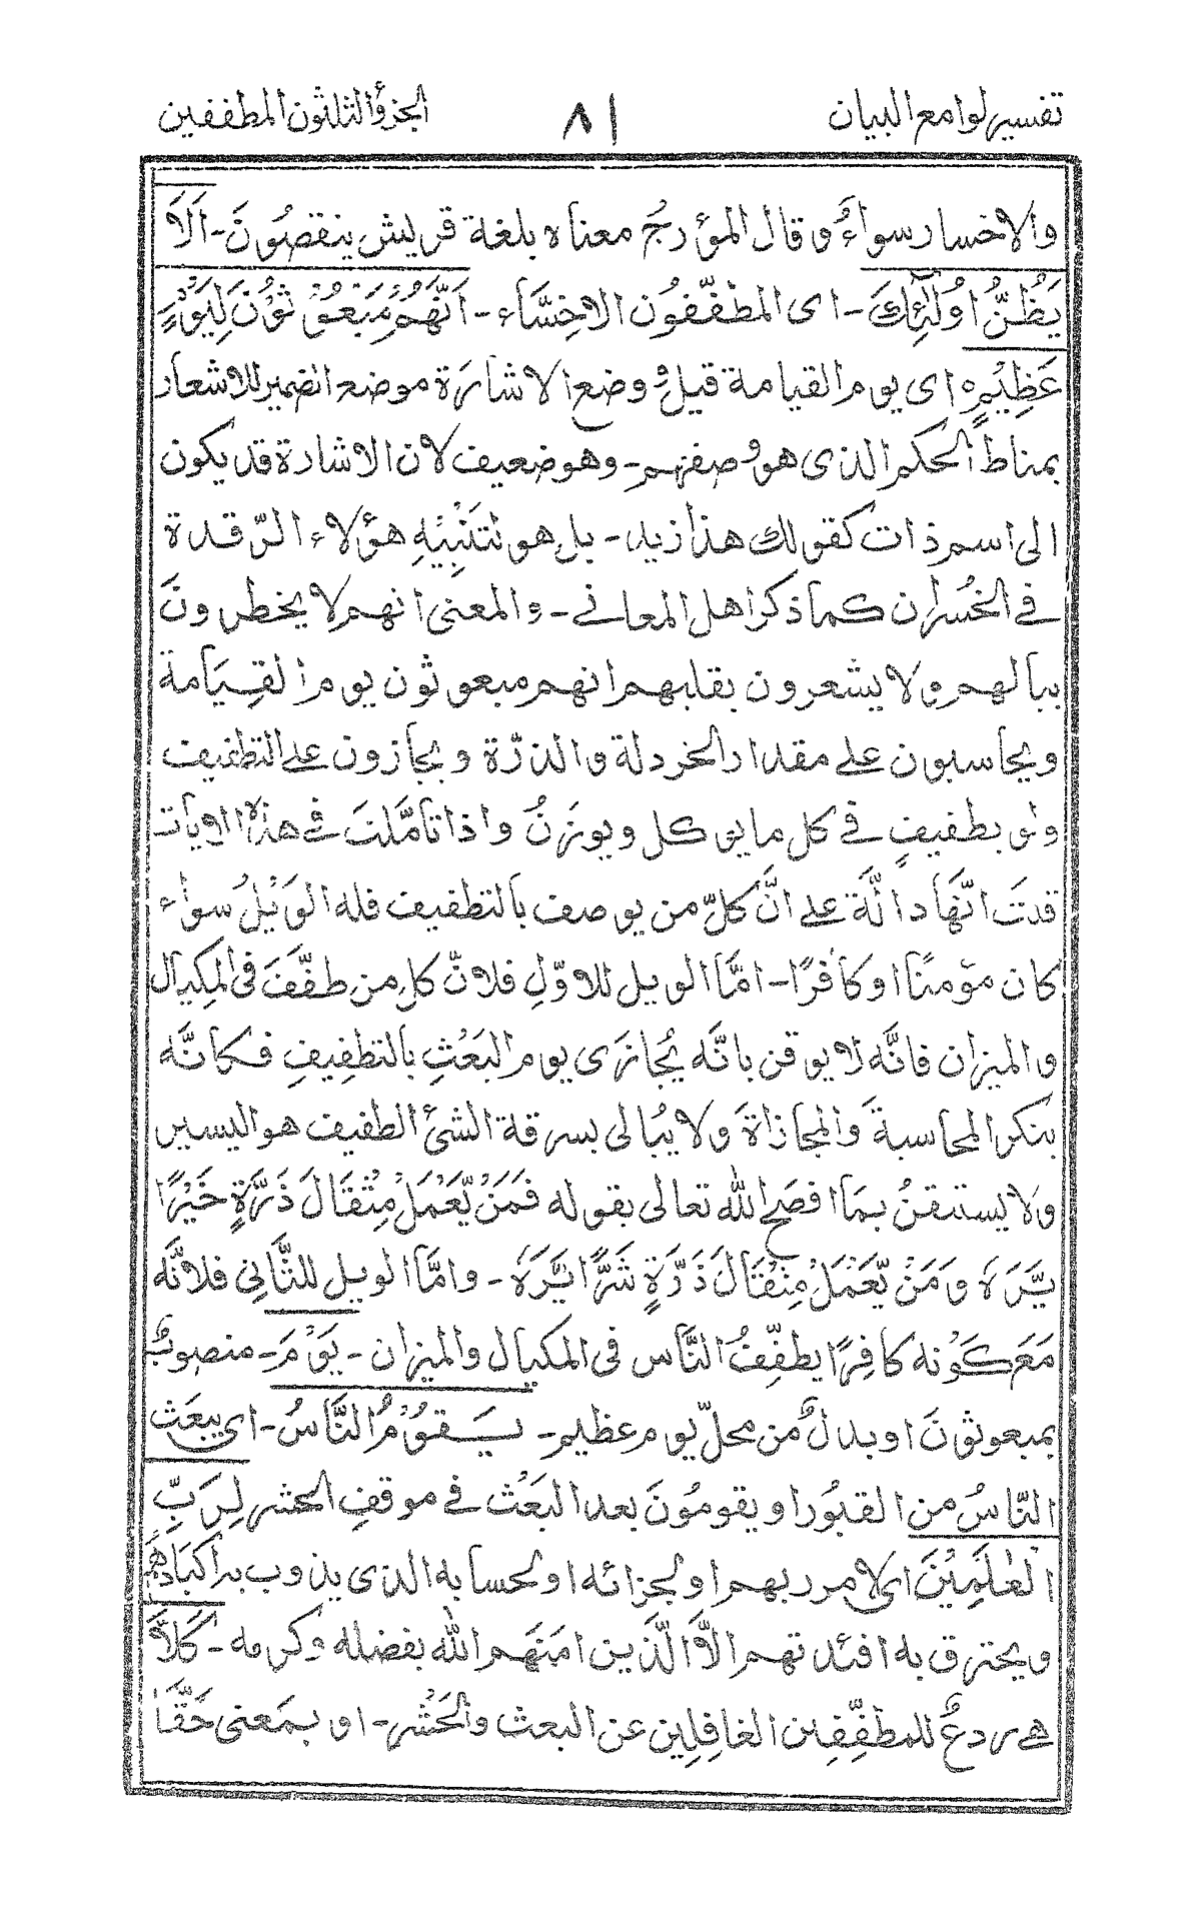 تفسير لوامع البيان ٨١ الجزؤ الثلثون المطففين
والاخسار سواءٌ وقال المؤرجُ معناه بلغة قريش ينقصُونَ - اَلَا
يَظُنُّ اُولٰٓئِكَ - اى المطفّفُون الاخِسَّاء - اَنَّهُمْ مَبْعُوْثُوْنَ لِيَوْمٍ
عَظِيْمٍ ه اى يوم القيامة قيل و وضع الاشارة موضع الضمير للاشعار
بمناط الحكم الذى هو وصفهم - وهو ضعيف لان الاشارة قد يكون
الى اسم ذات كقولك هذا زيد - بل هو لتَنْبِيْهِ هؤلاء الرّقدة
فى الخُسران كما ذكر اهل المعانى - والمعنى انهم لا يخطرونَ
ببالهم ولا يشعرون بقلبهم انهم مبعوثون يوم القِيَامة
ويحاسبون على مقدار الخردلة والذرّة ويجازون على التطفيف
ولو بطفيفٍ فى كل ما يوكل ويوزنُ واذا تامَّلتَ فى هذه الايات
قدتَ انَّهَا دالَّة على انَّ كلّ من يوصف بالتطفيف فله الوَيْلُ سواء
كان مؤمنًا او كافرًا - امَّا الويل للاوّلِ فلانّ كل من طفَّفَ فى المِكيال
والميزان فانَّه لا يوقن بانَّه يُجازى يوم البَعْثِ بالتطفِيفِ فكانَّه
ينكر المحاسبةَ والمجازاةَ ولا يُبالى بسرقة الشئ الطفيف هو اليسير
ولا يستتقنُ بمَا افصَح الله تعالى بقوله فَمَنْ يَّعْمَلْ مِثْقَالَ ذَرَّةٍ خَيْرًا
يَّرَهُ وَمَنْ يَّعْمَلْ مِثْقَالَ ذَرَّةٍ شَرًّا يَّرَهُ - وامَّا الويل للثَّانِى فلانَّه
مَعَ كَوْنه كافِرًا يطفِّفُ النَّاس فى المكيال والميزان - يَوْمَ - منصوبٌ
بمبعوثونَ او بدلٌ من محلّ يوم عظيم - يَقُوْمُ النَّاسُ - اى يبعَث
النّاسُ من القبُور او يقومُونَ بعد البَعْث فى موقفِ الحشر لِرَبِّ
الْعٰلَمِيْنَ اى لامر ربهم او لجزائه او لحسابه الذى يذوب به اكبادهُم
ويحترق به افئدتهم الَّا الَّذين امَنَهم الله بفضله وكرمه - كَلَّا
هى ردعٌ للمطفِّفِين الغافِلِين عن البعث والحَشْر - او بمَعنى حَقًّا